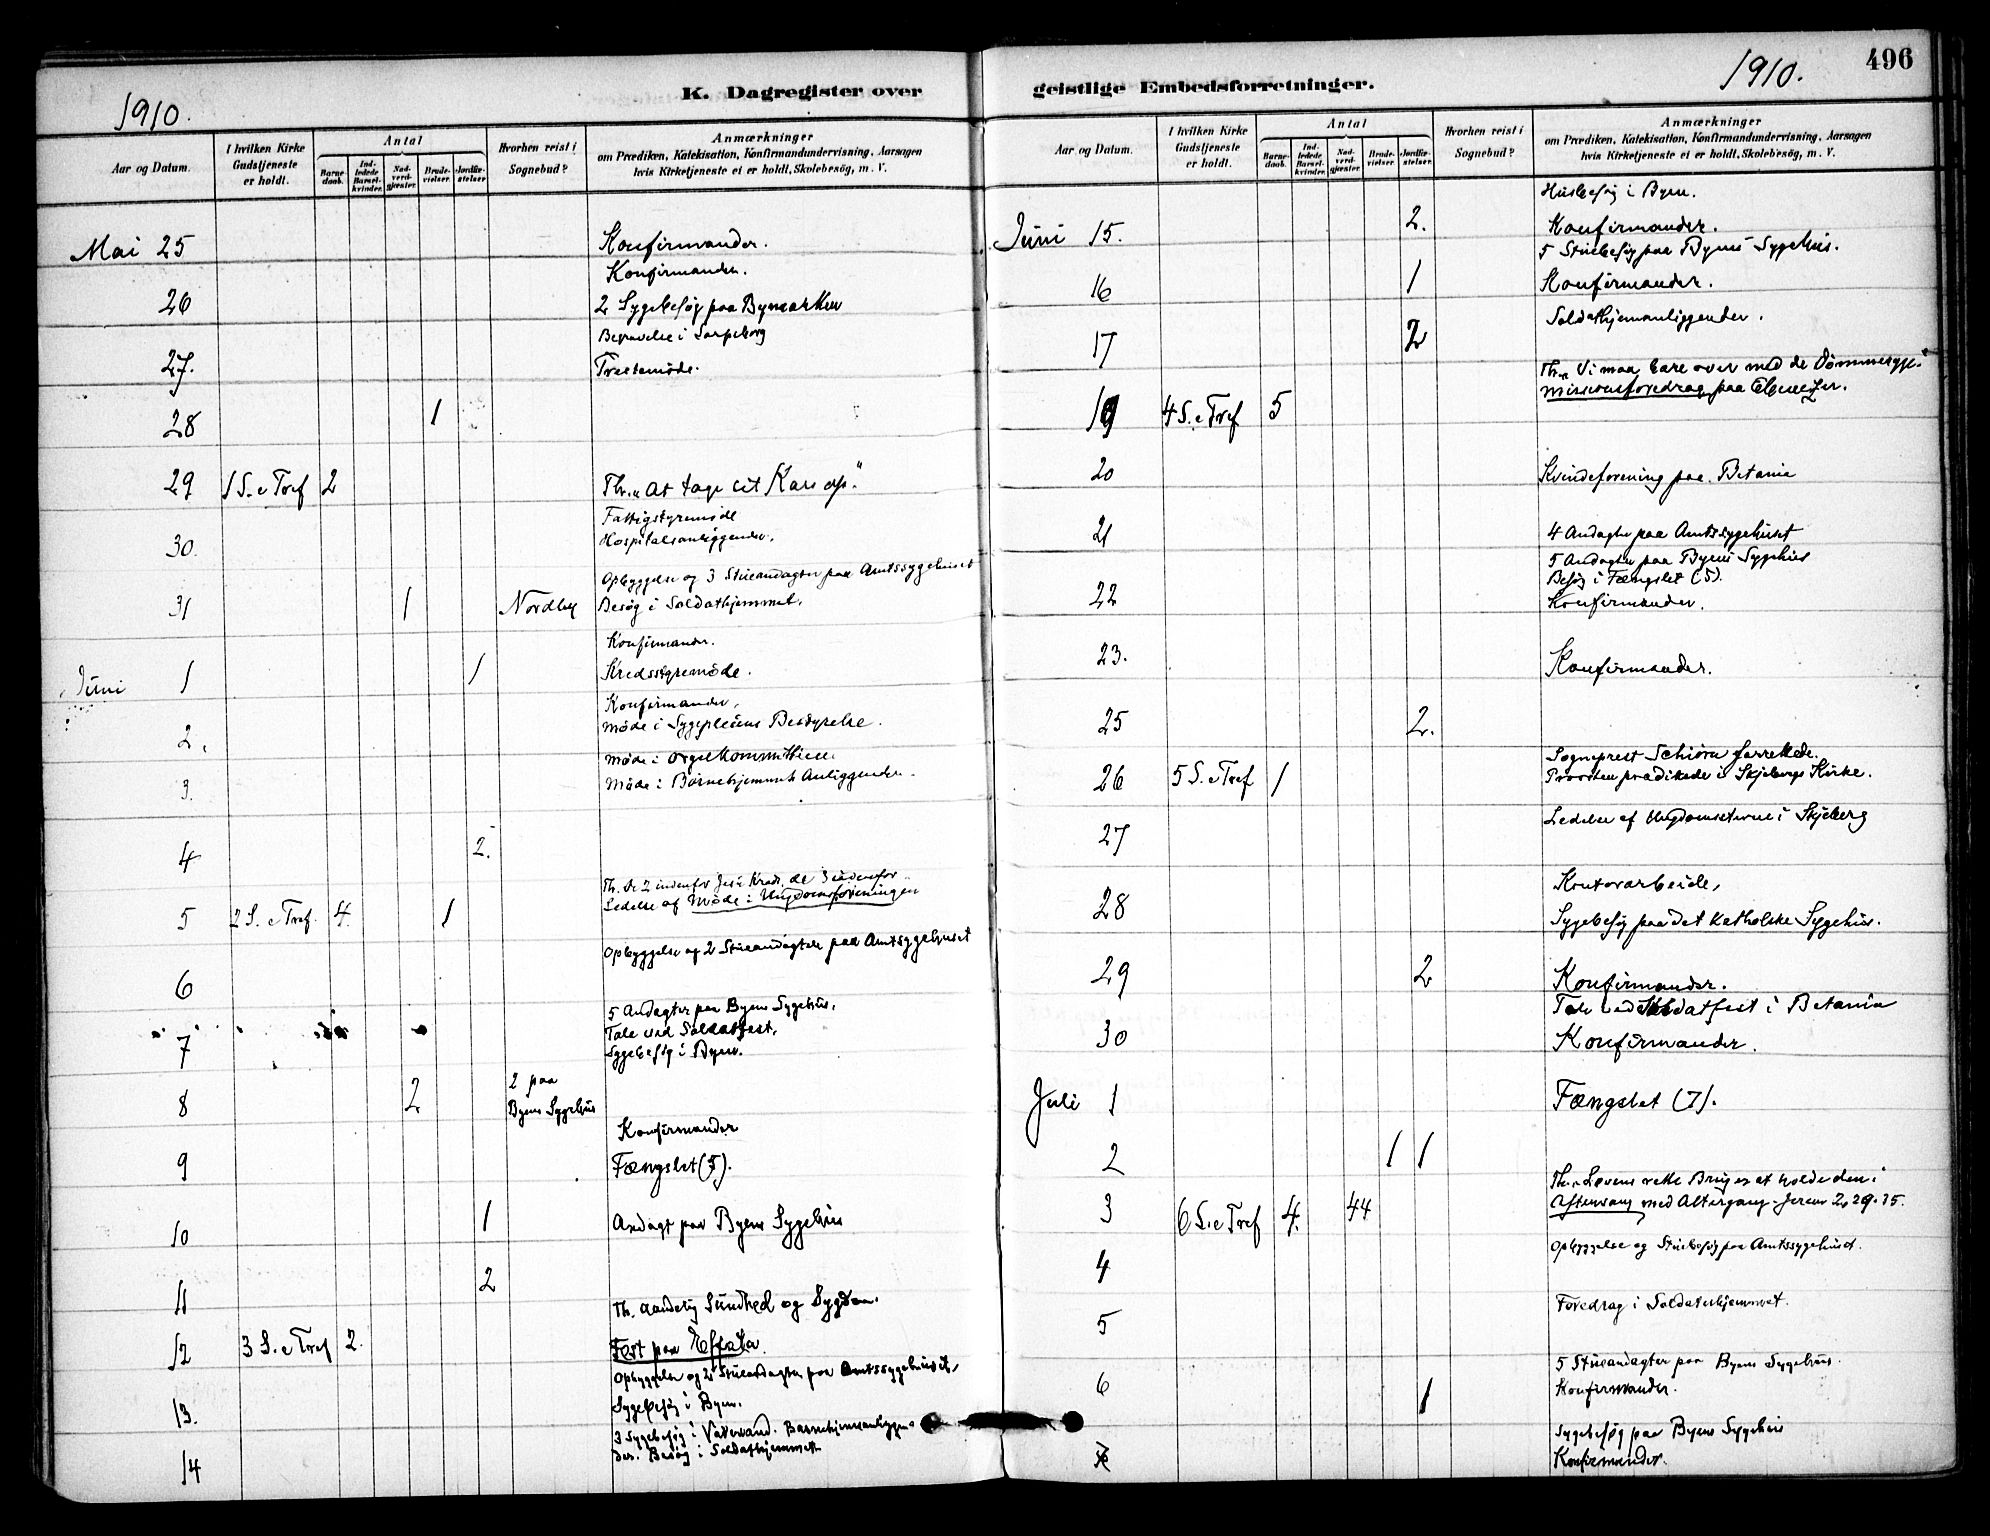 1910.
K. Dagregister over
Aar og Datum.
I hvilken Kirke Gudstjeneste er holdt.
Antal
Barne-daab.
Ind-ledede Barsel-kvinder.
Nad-verd-gjæster.
Brude-vielser.
Jordfæ-stelser.
Hvorhen reist i Sognebud?
Anmærkninger
om Prædiken, Katekisation, Konfirmandundervisning, Aarsagen
hvis Kirketjeneste ei er holdt, Skolebesög, m. V.
Mai 25 Konfirmander.
Konfirmander.
26 2 Sygebesøg paa Bymarken
Begravelse i Sarpsborg
27. Treetemøde.
28 1
29 1 S. e Tref 2 Th. „At tage sit Kors op.“
Fattigstyremøde
30. Hospitalsanliggender.
Opbyggelse og 3 Stueandagter paa Amtssygehuset
31 1 Nordby Besøg i Soldathjemmet.
Konfirmander.
Juni 1 1 Kredsstyremøde.
Konfirmander,
2. Møde i Sygepleiens Bestyrelse.
Møde i Orgelkommitteen
3. Møde i Børnehjemmets Anliggender.
4 2.
Th. De 2 indenfor Jesu Kreds, de 3 udenfor
5 2 S. e Tref. 4. 1 Ledelse af Møde i Ungdomsforeningen
Opbyggelse og 2 Stueandagter paa Amtsygehuset
6
5 Andagter paa Byens Sygehus.
7 Tale ved Soldatfest.
Sygebesøg i Byen.
8 2 2 paa
Byens Sygehus
Konfirmander
9 Fængslet (5).
10 1 Andagt paa Byens Sygehus
11 2
Th. Aandelig Sundhed og Sygdom.
12 3 S. e Tref 2. Fest paa Effata.
Opbyggelse og 2 Stueandagter paa Amtssygehuset,
13. Sygebesøg i Byen.
3 Sygebesøg i Vaterland. Barnehjemsanliggen-
14 der. Besøg i Soldathjemmet
geistlige Embedsforretninger.
1910.
496
Aar og Datum.
I hvilken Kirke Gudstjeneste er holdt.
Antal
Barne-daab.
Ind-ledede Barsel-kvinder.
Nad-verd-gjæster.
Brude-vielser.
Jordfæ-stelser.
Hvorhen reist i Sognebud?
Anmærkninger
om Prædiken, Katekisation, Konfirmandundervisning, Aarsagen
hvis Kirketjeneste ei er holdt, Skolebesög, m. V.
Husbesøg i Byen.
Juni 15. 2. Konfirmander.
5 Stuebesøg paa Byens Sygehus.
16 1 Konfirmander.
Soldathjemanliggender.
17 2
Th. „Vi maa bare over med de
Missionsforedrag paa Ebenezer.
19 4 S. e Tref 5
20 Kvindeforening paa Betania
21 4 Andagter paa Amtssygehuset
5 Andagter paa Byens Sygehus
Besøg i Fængslet (5).
22 Konfirmander.
23. Konfirmander.
25 2.
Sogneprest Schiørn forrettede.
26 5 S. e Tref 1 Provsten prædikede i Skjebergs Kirke.
Ledelse af Ungdomsstevne i Skjeberg
27
Kontorarbeide,
28 Sygebesøg paa det katholske Sygehus.
29 2 Konfirmander.
Tale ved Soldatfest i Betania
30 Konfirmander.
Juli 1 Fængslet (7).
2 1 1
Th. „Lovens rette Brug er at holde den.“
3 6 S. e Tref 4. 44 Aftensang med Altergang Jerem 2, 29-35.
Opbyggelse og Stuebesøg paa Amtssygehuset.
4
Foredrag i Soldaterhjemmet.
5
5 Stueandagter paa Byens Sygehus.
6 1 Konfirmander.
Sygebesøg paa Byens Sygehus
Konfirmander.